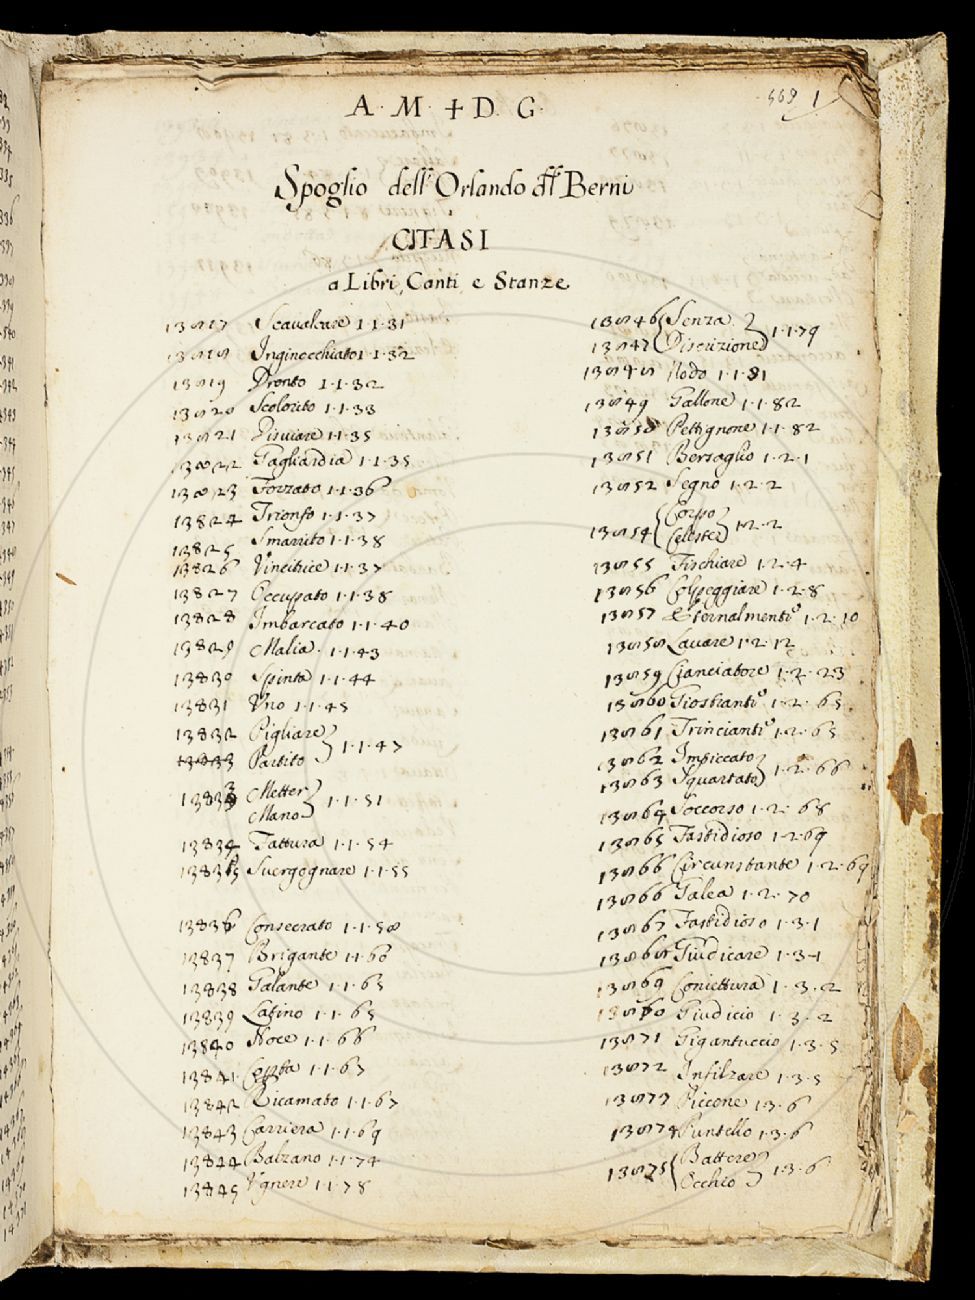 569 1
A. M. + D. G.
Spoglio dell'Orlando dll Berni
CITASI
a Libri, Canti e Stanze
13817 Scavalcare 1.1.31
13818 Inginocchiato 1.1.32
13819 Pronto 1.1.32
13820 Scolorito 1.1.33
13821 Disviare 1.1.35
13822 Gagliardia 1.1.35
13823 Forzato 1.1.36
13824 Trionfo 1.1.37
13825 Smarrito 1.1.38
13826 Vincitrice 1.1.37
13827 Occupato 1.1.38
13828 Imbarcato 1.1.40
13829 Malia 1.1.43
13830 Spinta 1.1.44
13831 Uno 1.1.45
13832 Pigliare
13833 Partito 1.1.47
13833 Metter
Mano 1.1.51
13834 Fattura 1.1.54
13835 Svergognare 1.1.55
13836 Consecrato 1.1.58
13837 Brigante 1.1.60
13838 Galante 1.1.63
13839 Latino 1.1.65
13840 Noce 1.1.66
13841 1.1.63
13842 Ricamato 1.1.67
13843 Carriera 1.1.69
13844 Balzano 1.1.74
13845 Ugnere 1.1.78
13846 Senza
13847 Discrizione 1.1.79
13848 Nodo 1.1.81
13849 Gallone 1.1.82
13850 Pettignone 1.1.82
13851 Bersaglio 1.2.1
13852 Segno 1.2.2
13854 Corpo
Celeste 1.2.2
13855 Fischiare 1.2.4
13856 Colpeggiare 1.2.8
13857 Eternalmente 1.2.10
13858 Lavare 1.2.12
13859 Cianciatore 1.2.23
13860 Giostrante 1.2.63
13861 Trinciante 1.2.63
13862 Impiccato
13863 Squartato 1.2.66
13864 Soccorso 1.2.68
13865 Fastidioso 1.2.69
13866 Circunstante 1.2.69
13866 Galea 1.2.70
13867 Fastidioso 1.3.1
13868 Giudicare 1.3.1
13869 Coniettura 1.3.2
13860 Giudicio 1.3.2
13871 Gigantuccio 1.3.5
13872 Infilzare 1.3.5
13873 Piccone 1.3.6
13874 Puntello 1.3.6
13875 Battere
Occhio 1.3.6